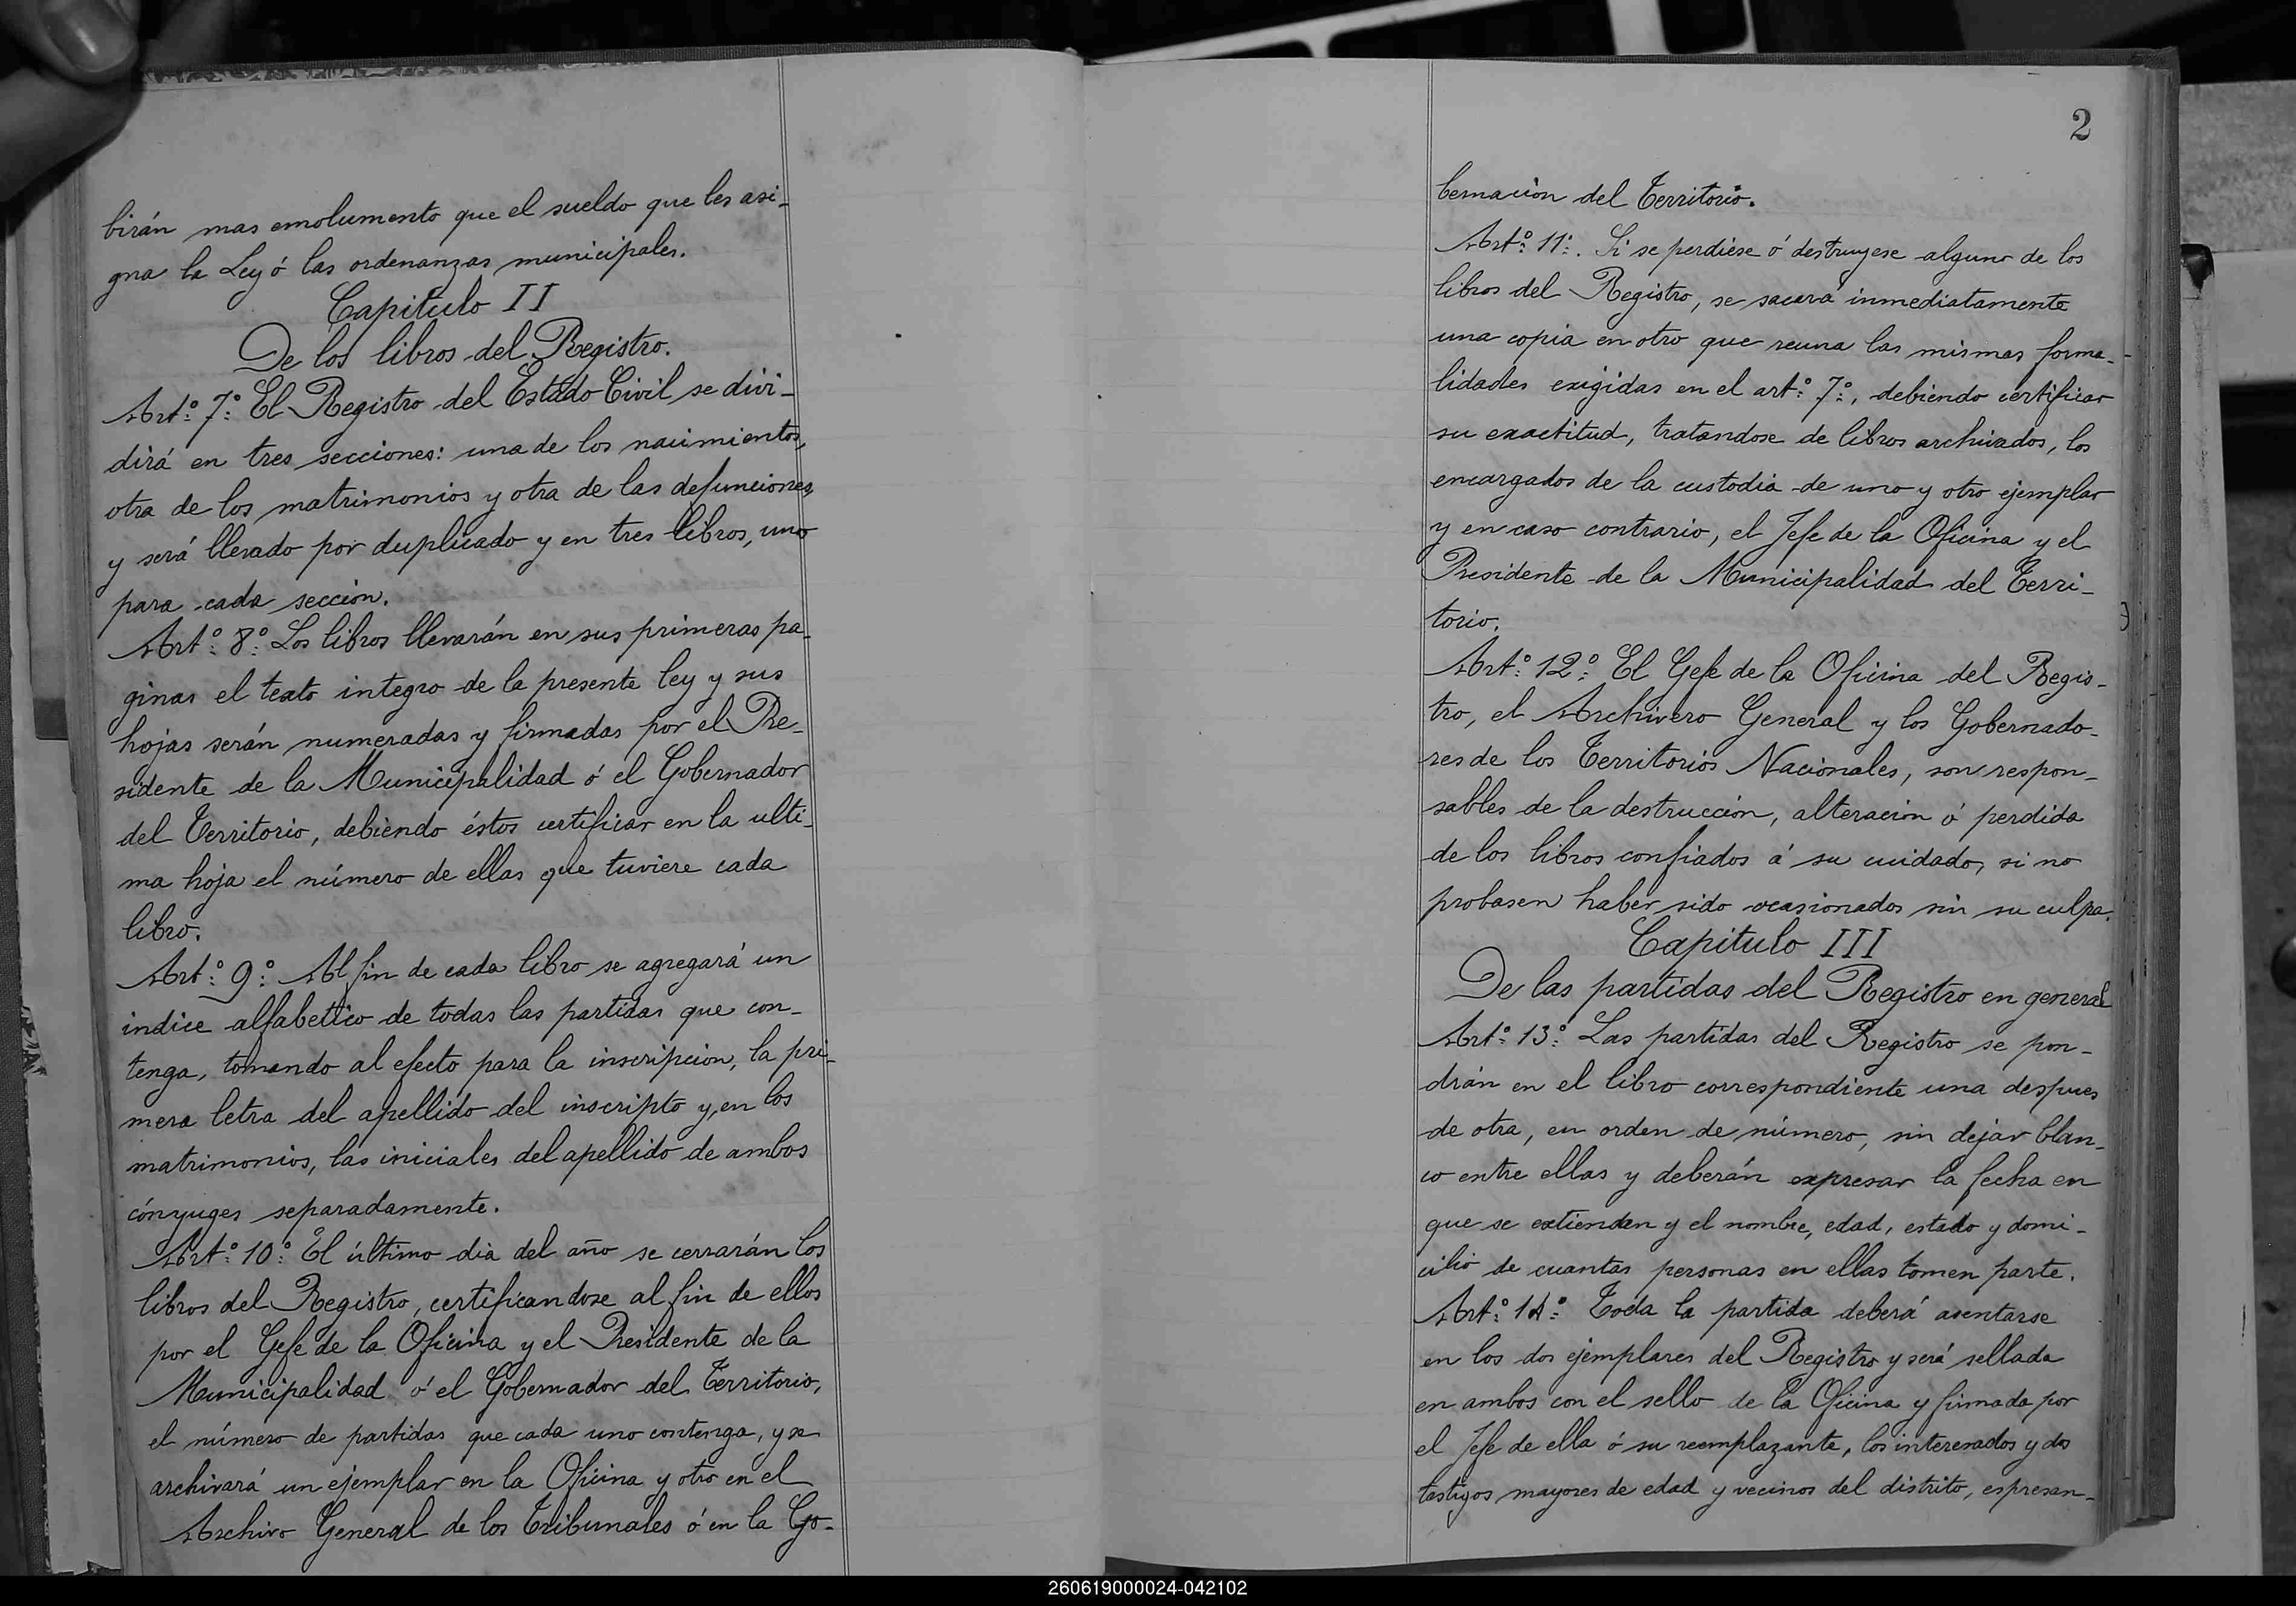 birán mas emolumento que el sueldo que les asi-
gna la Ley ó las ordenanzas municipales.
Capitulo II
De los libros del Registro.
Art.º 7.º El Registro del Estado Civil se divi-
dirá en tres secciones: una de los nacimientos,
otra de los matrimonios y otra de las defunciones,
y será llevado por duplicado y en tres libros, uno
para cada seccion.
Art.º 8.º Los libros llevarán en sus primeras pa-
ginas el texto integro de la presente ley y sus
hojas serán numeradas y firmadas por el Pre-
sidente de la Municipalidad ó el Gobernador
del Territorio, debiendo éstos certificar en la ulti-
ma hoja el número de ellas que tuviere cada
libro.
Art.º 9.º Al fin de cada libro se agregará un
indice alfabetico de todas las partidas que con-
tenga, tomando al efecto para la inscripcion, la pri-
mera letra del apellido del inscripto y, en los
matrimonios, las iniciales del apellido de ambos
cónyuges separadamente.
Art.º 10.º El último dia del año se cerrarán los
libros del Registro, certificandose al fin de ellos
por el Gefe de la Oficina y el Presidente de la
Municipalidad ó el Gobernador del Territorio,
el número de partidas que cada uno contenga, y se
archivará un ejemplar en la Oficina y otro en el
Archivo General de los Tribunales ó en la Go-
2
bernacion del Territorio.
Art.º 11.º Si se perdiese ó destruyese alguno de los
libros del Registro, se sacará inmediatamente
una copia en otro que reuna las mismas forma-
lidades exigidas en el art.º 7.º, debiendo certificar
su exactitud, tratandose de libros archivados, los
encargados de la custodia de uno y otro ejemplar
y en caso contrario, el Jefe de la Oficina y el
Presidente de la Municipalidad del Terri-
torio.
Art.º 12.º El Gefe de la Oficina del Regis-
tro, el Archivero General y los Gobernado-
res de los Territorios Nacionales, son respon-
sables de la destrucción, alteracion ó perdida
de los libros confiados á su cuidado, si no
probasen haber sido ocasionados sin su culpa.
Capitulo III
De las partidas del Registro en general
Art.º 13.º Las partidas del Registro se pon-
drán en el libro correspondiente una despues
de otra, en orden de número, sin dejar blan-
co entre ellas y deberán expresar la fecha en
que se extienden y el nombre, edad, estado y domi-
cilio de cuantas personas en ellas tomen parte.
Art.º 14.º Toda la partida deberá asentarse
en los dos ejemplares del Registro y será sellada
en ambos con el sello de la Oficina y firmada por
el Jefe de ella ó su reemplazante, los interesados y dos
testigos mayores de edad y vecinos del distrito, espresan-
260619000024-042102